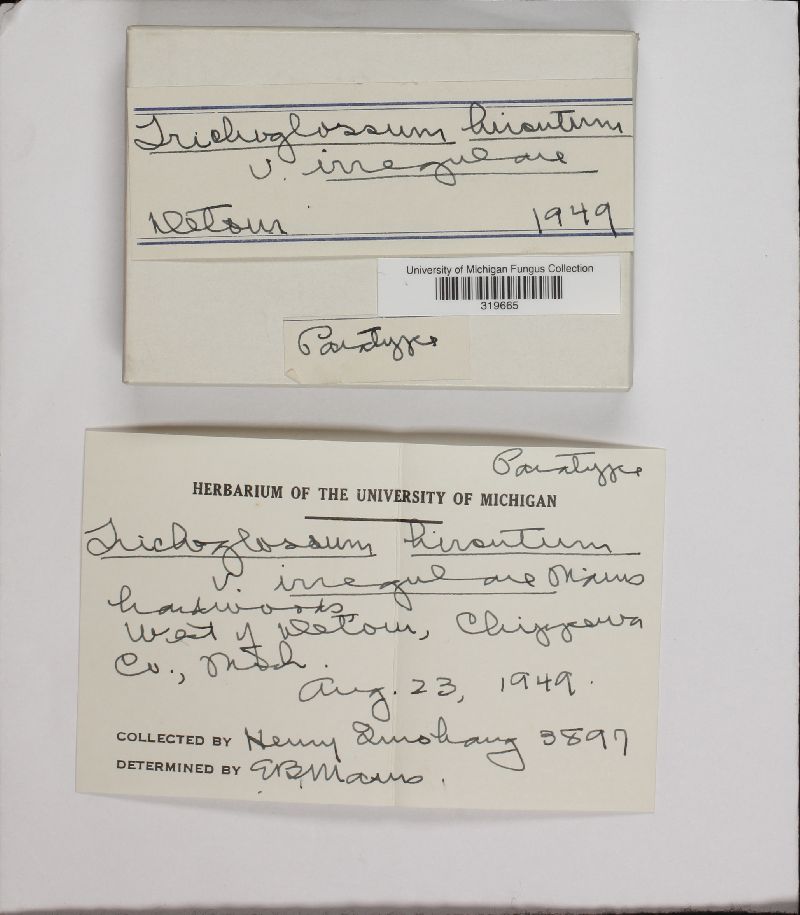 Trichoglossum hirsutum
v. irregulare
Detour 1949
University of Michigan Fungus Collection
319665
Paratype
Paratype
HERBARIUM OF THE UNIVERSITY OF MICHIGAN
Trichoglossum hirsutum
v. irregulare Mains
hardwoods
West of Detour, Chippewa
Co., Mich.
Aug. 23, 1949.
COLLECTED BY Henry Imshaug 3897
DETERMINED BY E.B. Mains.